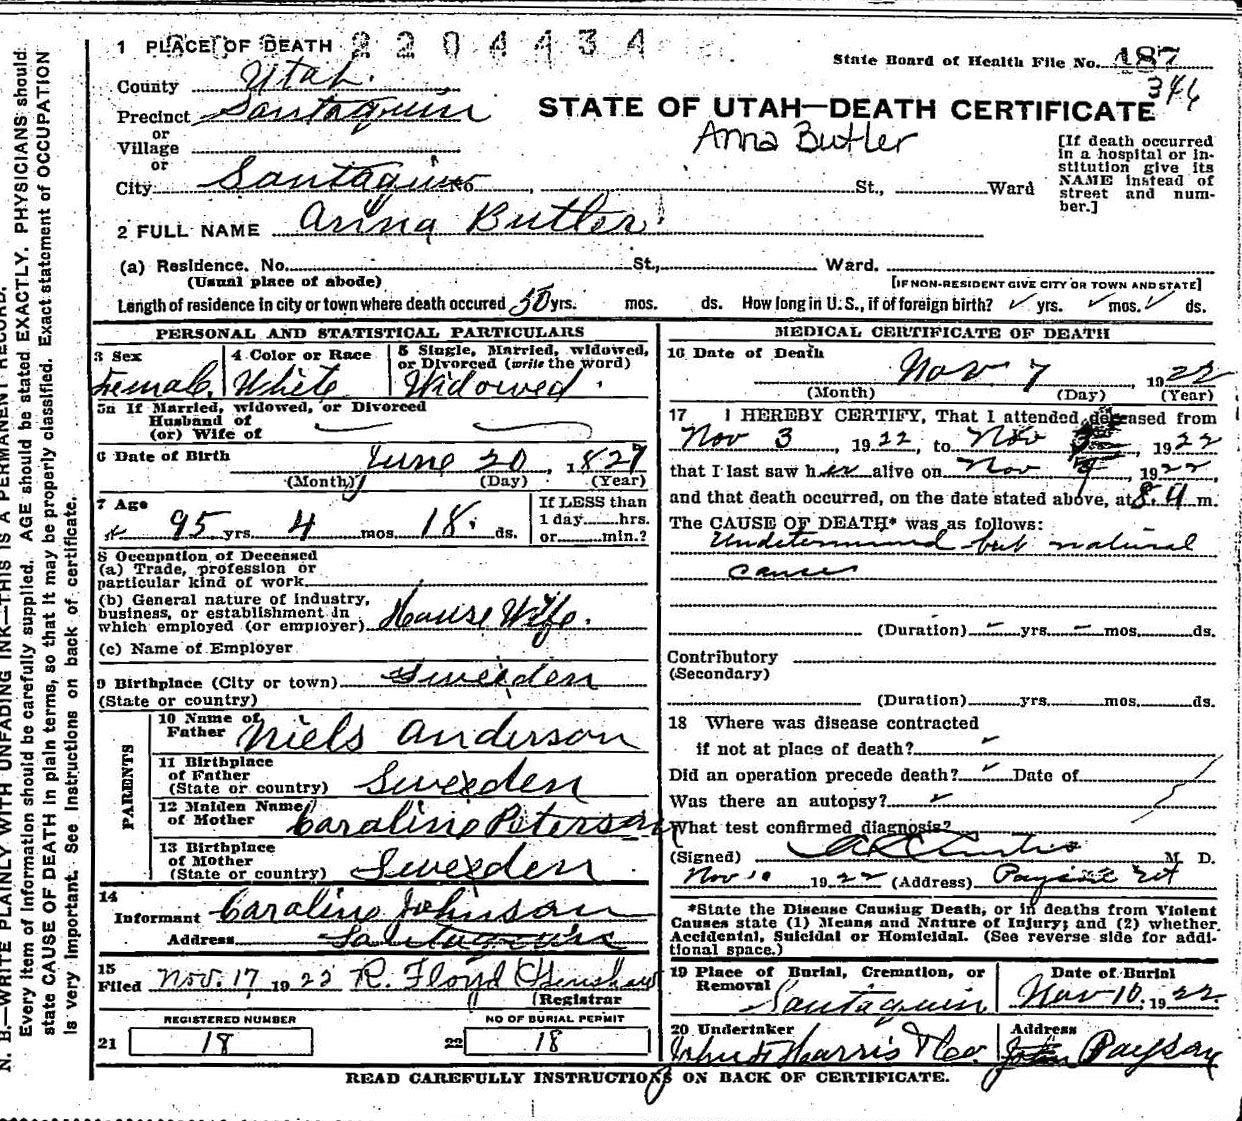 1 PLACE OF DEATH 2204434
State Board of Health File No. 187
County Utah.
346
Precinct Santaquin
STATE OF UTAH—DEATH CERTIFICATE
or
Village
Anna Butler
or
City Santaquin No. , St., Ward
[If death occurred
in a hospital or in-
stitution give its
NAME instead of
street and num-
ber.]
2 FULL NAME Anna Butler
(a) Residence. No. St., Ward.
(Usual place of abode) [IF NON-RESIDENT GIVE CITY OR TOWN AND STATE]
Length of residence in city or town where death occured 50 yrs. mos. ds. How long in U. S., if of foreign birth? ✓ yrs. ✓ mos. ✓ ds.
PERSONAL AND STATISTICAL PARTICULARS
3 Sex
Female
4 Color or Race
White
5 Single, Married, widowed,
or Divorced (write the word)
Widowed.
5a If Married, widowed, or Divorced
Husband of
(or) Wife of
6 Date of Birth June 20, 1827
(Month) (Day) (Year)
7 Age
95 yrs. 4 mos. 18. ds.
If LESS than
1 day hrs.
or min.?
8 Occupation of Deceased
(a) Trade, profession or
particular kind of work
(b) General nature of industry,
business, or establishment in
which employed (or employer) House Wife.
(c) Name of Employer
9 Birthplace (City or town) Sweeden
(State or country)
PARENTS
10 Name of
Father Niels Anderson
11 Birthplace
of Father
(State or country) Sweeden
12 Maiden Name
of Mother Caroline Peterson
13 Birthplace
of Mother
(State or country) Sweeden
14
Informant Caroline Johnson
Address Santaquin
15
Filed Nov. 17, 1922 R. Floyd
Registrar
REGISTERED NUMBER NO OF BURIAL PERMIT
21 18 22 18
MEDICAL CERTIFICATE OF DEATH
16 Date of Death
Nov 7, 1922
(Month) (Day) (Year)
17 I HEREBY CERTIFY, That I attended deceased from
Nov 3 1922, to Nov , 1922
that I last saw her alive on Nov , 1922
and that death occurred, on the date stated above, at 8. a m.
The CAUSE OF DEATH* was as follows:
Undetermined but natural
causes
(Duration) – yrs. – mos. ds.
Contributory
(Secondary)
(Duration) yrs. mos. ds.
18 Where was disease contracted
if not at place of death? ✓
Did an operation precede death? ✓ Date of
Was there an autopsy? ✓
What test confirmed diagnosis?
(Signed) Curtis M. D.
Nov 10 1922 (Address) Payson Ut
*State the Disease Causing Death, or in deaths from Violent
Causes state (1) Means and Nature of Injury; and (2) whether
Accidental, Suicidal or Homicidal. (See reverse side for addi-
tional space.)
19 Place of Burial, Cremation, or
Removal
Santaquin
Date of Burial
Nov 10, 1922.
20 Undertaker
Harris & Co.
Address
Payson
READ CAREFULLY INSTRUCTIONS ON BACK OF CERTIFICATE.
N. B.—WRITE PLAINLY WITH UNFADING INK—THIS IS A PERMANENT RECORD.
Every item of information should be carefully supplied. AGE should be stated EXACTLY. PHYSICIANS should
state CAUSE OF DEATH in plain terms, so that it may be properly classified. Exact statement of OCCUPATION
is very important. See Instructions on back of certificate.